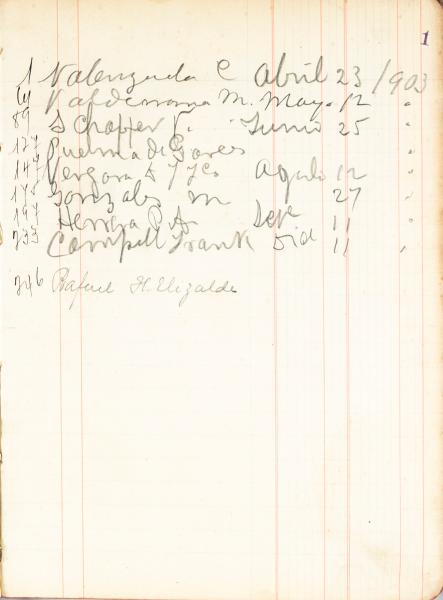 1
1 Valenzuela C Abril 23 / 1903
64 Valderrama M. Mayo 12 "
89 Schaffer V. Junio 25 "
127 Guerma de Gores "
149 Vergara Agosto 12 "
175 Gonzales M 27 "
197 Herrera P. A. Sepe 11 "
233 Campill Frank Dic 11 "
246 Rafael H. Elizalde